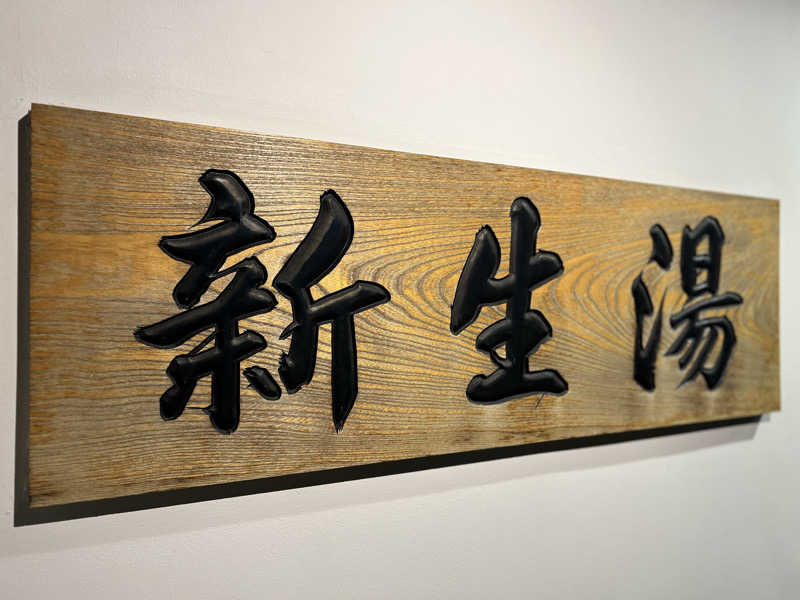 新生湯